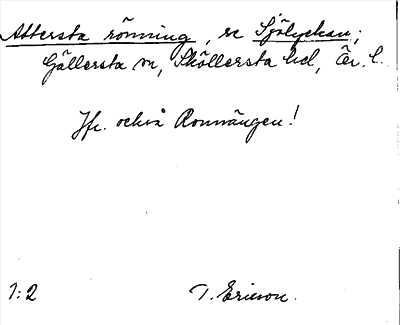 Attersta rönning, se Sjölyckan;
Gällersta sn, Sköllersta hd, Är. l.
Jfr. också Ronnängen!
1:2 T. Ericson.